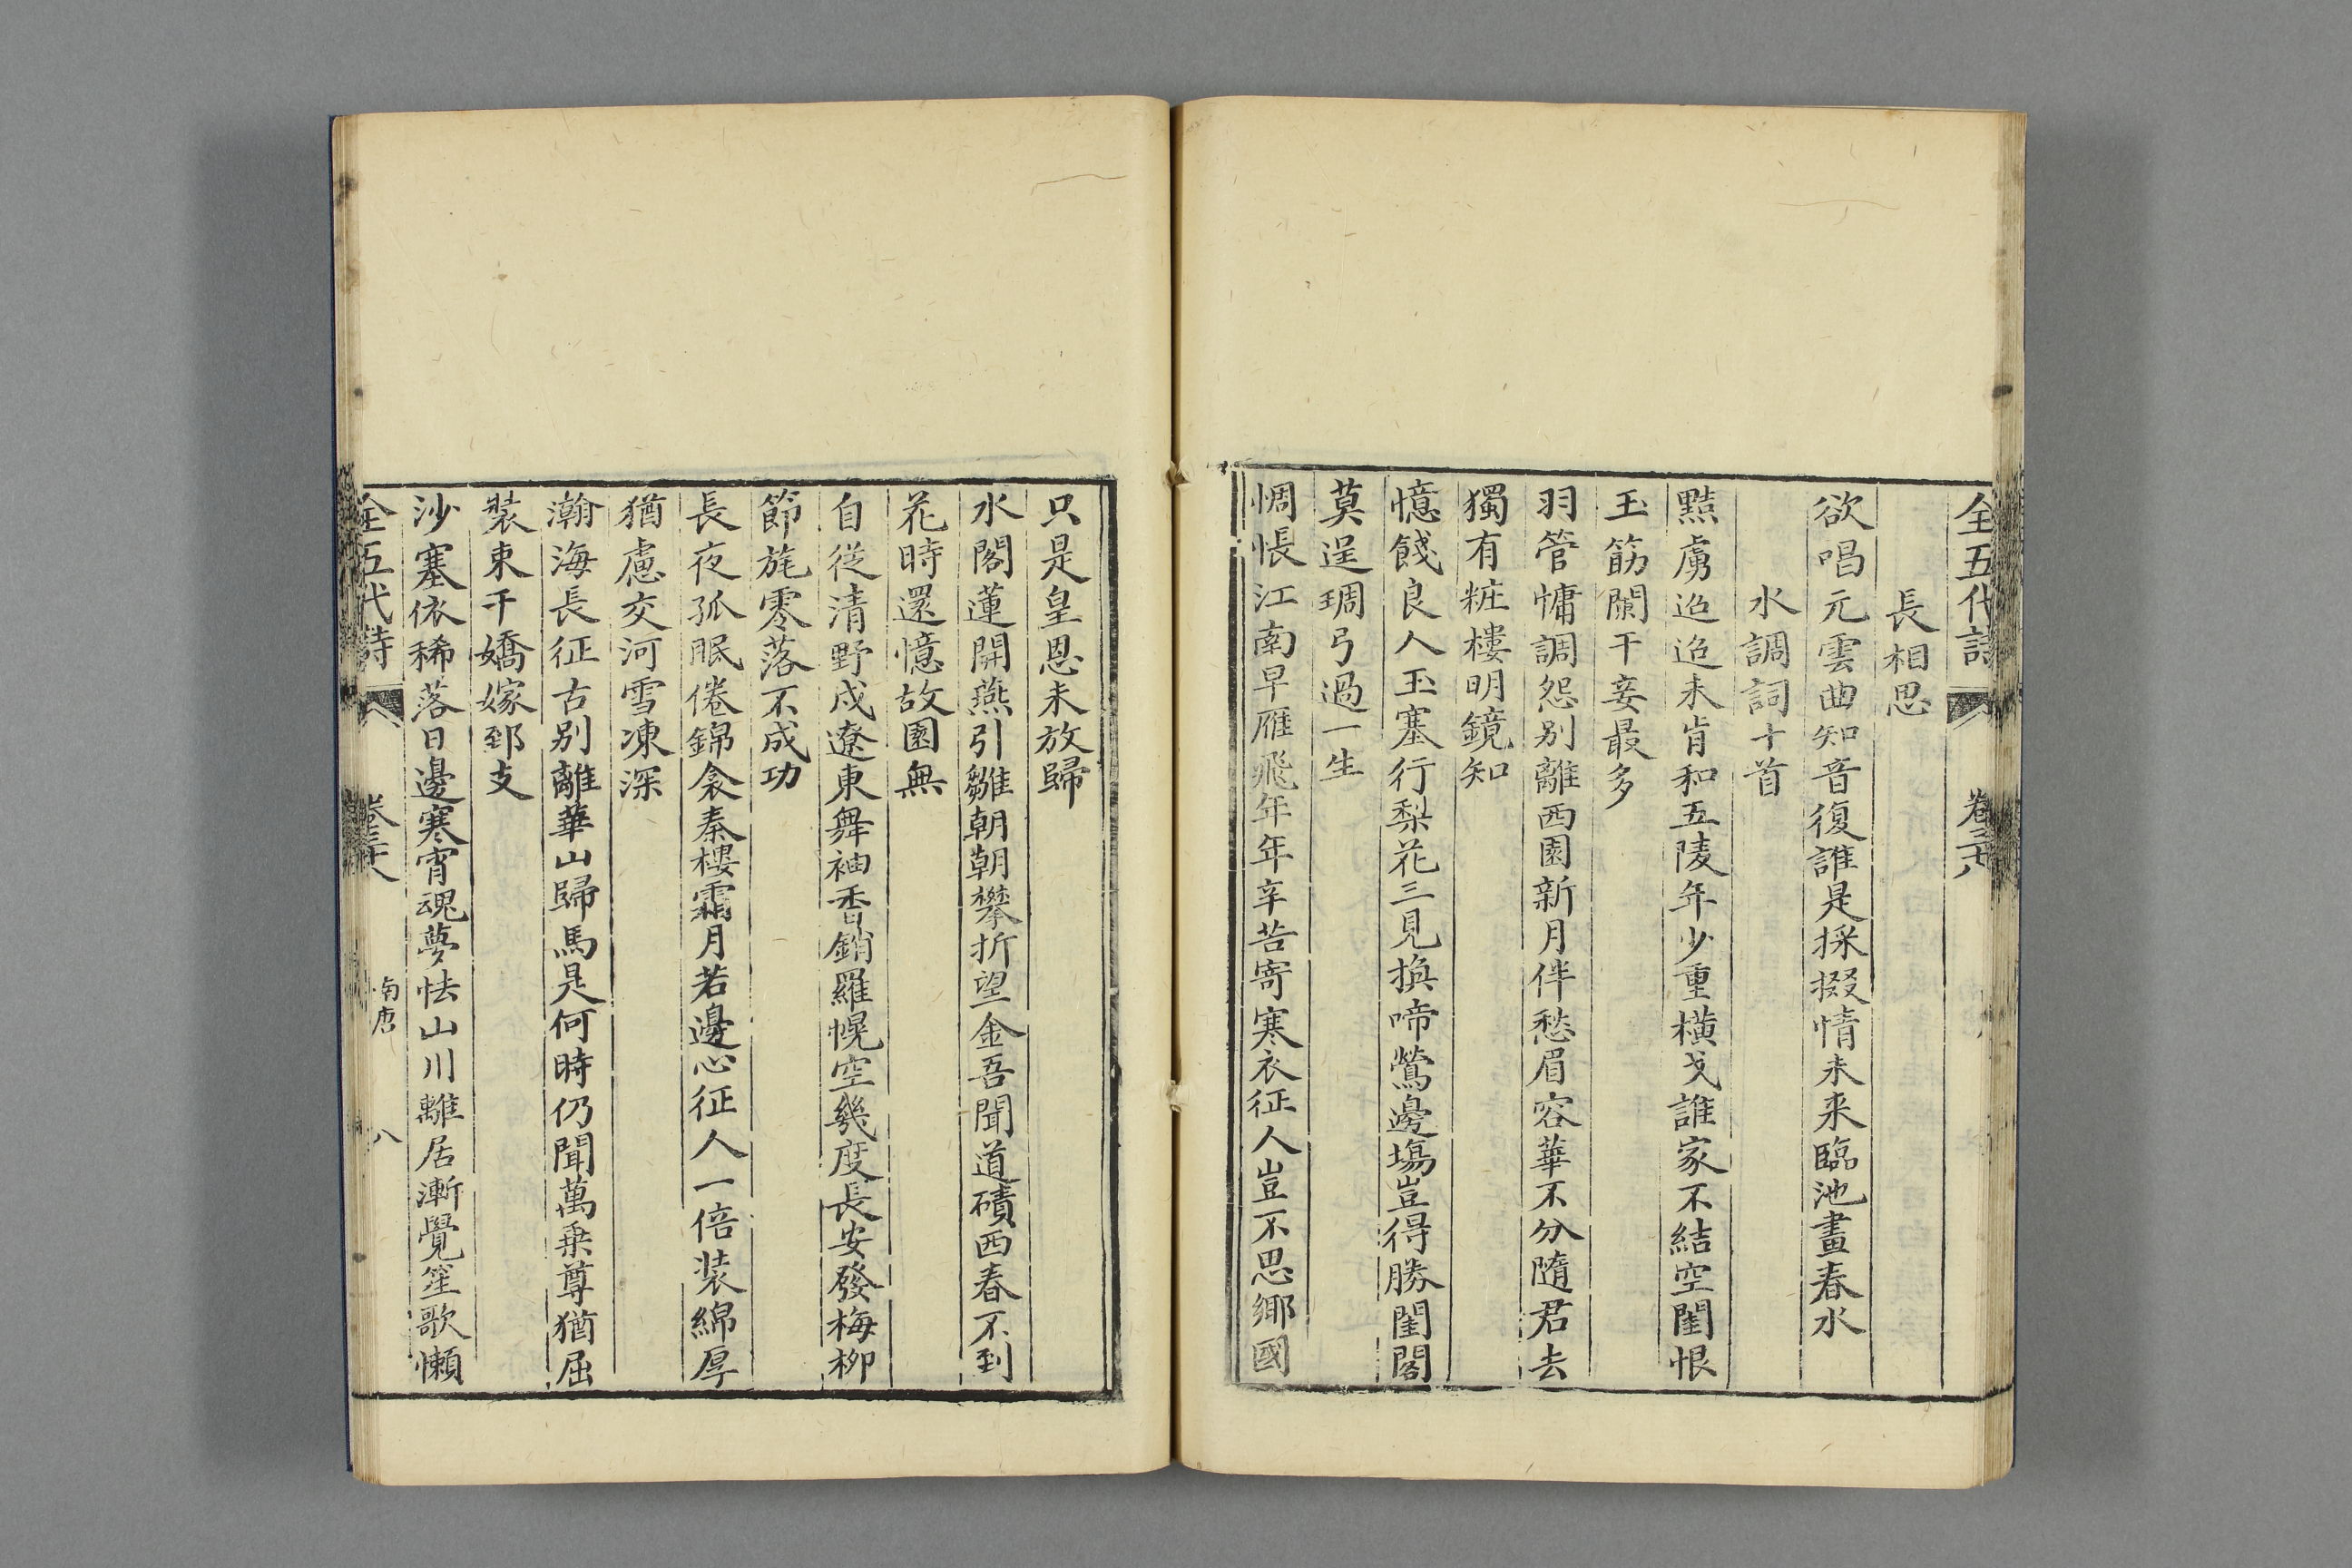 全五代詩 卷三十八
長相思
欲唱元雲曲知音復誰是採掇情未来臨池畫春水
水調詞十首
黠虜迢迢未肯和五陵年少重横戈誰家不結空閨恨
玉筯闌干妾最多
羽管慵調怨别離西園新月伴愁眉容華不分隨君去
獨有粧樓明鏡知
憶餞良人玉塞行梨花三見換啼鶯邊塲豈得勝閨閣
莫逞琱弓過一生
惆悵江南早雁飛年年辛苦寄寒衣征人豈不思鄉國
只是皇恩未放歸
水閣蓮開燕引雛朝朝攀折望金吾聞道磧西春不到
花時還憶故園無
自從清野戍遼東舞袖香銷羅幌空幾度長安發梅柳
節旄零落不成功
長夜孤眠倦錦衾秦樓霜月若邊心征人一倍裝綿厚
猶慮交河雪凍深
瀚海長征古别離華山歸馬是何時仍聞萬乗尊猶屈
裝束千嬌嫁郅支
沙塞依稀落日邊寒宵魂夢怯山川離居漸覺笙歌懶
全五代詩 卷三十八 南唐 八